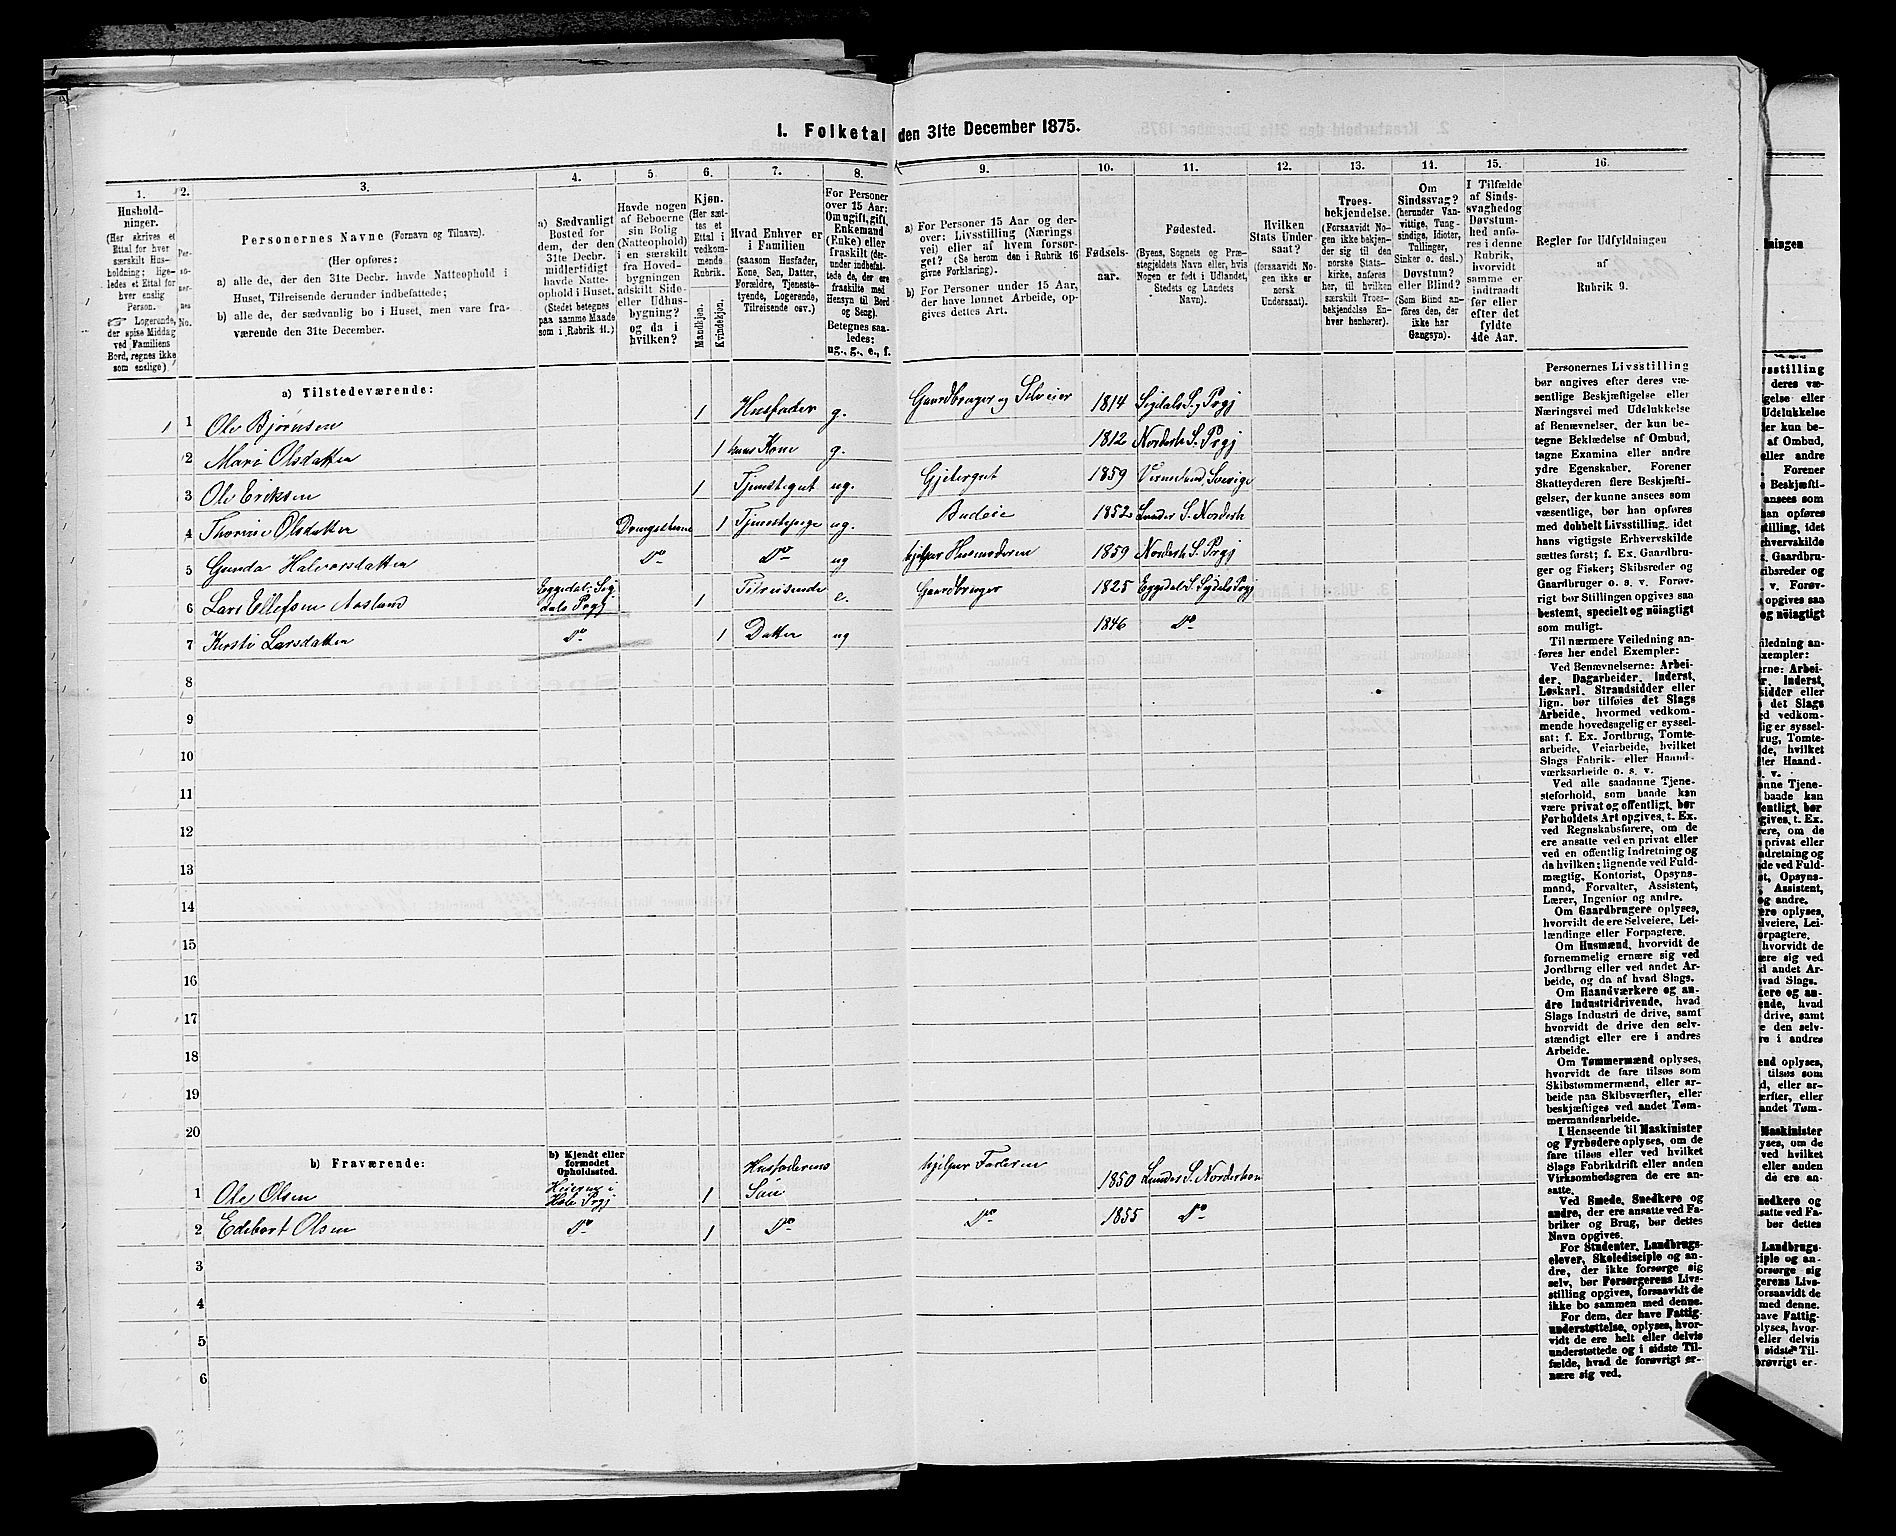 1. Folketal den 31te December 1875.
1.
Hushold-
ninger.
(Her skrives et
Ettal for hver
særskilt Hus-
holdning; lige-
ledes et Ettal for
hver enslig
Person.
☞ Logerende,
der spise Middag
ved Familiens
Bord, regnes ikke
som enslige).
2.
Per-
so-
ner-
nes
No.
3.
Personernes Navne (Fornavn og Tilnavn).
(Her opføres:
a) alle de, der den 31te Decbr. havde Natteophold i
Huset, Tilreisende derunder indbefattede;
b) alle de, der sædvanlig bo i Huset, men vare fra-
værende den 31te December.
4.
a) Sædvanligt
Bosted for
dem, der den
31te Decbr.
midlertidigt
havde Natte-
ophold i Huset.
(Stedet betegnes
paa samme Maade
som i Rubrik 11.)
5.
Havde nogen
af Beboerne
sin Bolig
(Natteophold)
i en særskilt
fra Hoved-
bygningen
adskilt Side-
eller Udhus-
bygning?
og da i
hvilken?
6.
Kjøn.
(Her sæt-
tes et
Ettal i
vedkom-
mende
Rubrik.
Mandkjøn.
Kvindekjøn.
7.
Hvad Enhver er
i Familien
(saasom Husfader,
Kone, Søn, Datter,
Forældre, Tjeneste-
tyende, Logerende,
Tilreisende osv.)
8.
For Personer
over 15 Aar:
Om ugift, gift,
Enkemand
(Enke) eller
fraskilt (der-
under indbefat-
tede de, der ere
fraskilte med
Hensyn til Bord
og Seng).
Betegnes saa-
ledes:
ug., g., e., f.
9.
a) For Personer 15 Aar og der-
over: Livsstilling (Nærings-
vei) eller af hvem forsør-
get? (Se herom den i Rubrik 16
givne Forklaring).
b) For Personer under 15 Aar,
der have lønnet Arbeide, op-
gives dettes Art.
10.
Fødsels-
aar.
11.
Fødested.
(Byens, Sognets og Præ-
stegjeldets Navn eller, hvis
Nogen er født i Udlandet,
Stedets og Landets
Navn).
12.
Hvilken
Stats Under
saat?
(forsaavidt No-
gen ikke er
norsk
Undersaat).
13.
Troes-
bekjendelse.
(Forsaavidt No-
gen ikke bekjen-
der sig til den
norske Stats-
kirke, anføres
her, til hvilken
særskilt Troes-
bekjendelse En-
hver henhører).
14.
Om
Sindssvag?
(herunder Van-
vittige, Tung-
sindige, Idioter,
Tullinger,
Sinker o. desl.)
Døvstum?
eller Blind?
(Som Blind an-
føres den, der
ikke har
Gangsyn).
15.
I Tilfælde
af Sinds-
svaghed og
Døvstum-
hed anfø-
res i denne
Rubrik,
hvorvidt
samme er
indtraadt
før eller
efter det
fyldte
4de Aar.
16.
Regler for Udfyldningen
af
Rubrik 9.
a) Tilstedeværende:
1 1 Ole Bjørnsen 1 Husfader g. Gaardbruger og Selveier 1814 Sigdals S. og Prgj
2 Mari Olsdatter 1 hans Kone g. 1812 Norderh S. Prgj
3 Ole Eriksen 1 Tjenestegut ug. Gjetergut 1859 Vermeland Sverige
4 Thorine Olsdatter 1 Tjenestepige ug. Budeie 1852 Lunder S. Norderh
5 Gunda Halvorsdatter Do Do ug hjelper Husmoderen 1859 Norderh S. Prgj
6 Lars Ellefsen Aasland Eggedal i Sig
dals Prgj 1 Tilreisende e. Gaardbruger 1825 Eggedal S. Sigdals Prgj
7 Kirsti Larsdatter Do 1 Datter ug 1846 Do
8
9
10
11
12
13
14
15
16
17
18
19
20
b) Fraværende:
b) Kjendt eller
formodet
Opholdssted.
1 Ole Olsen Hole Prgj 1 Husfaderens
Søn hjelper Faderen 1850 Lunder S. Norderhou
2 Edebort Olsen Do 1 Do Do 1855 Do
3
4
5
6
Personernes Livsstilling
bør angives efter deres væ-
sentlige Beskjæftigelse eller
Næringsvei med Udelukkelse
af Benævnelser, der kun be-
tegne Beklædelse af Ombud,
tagne Examina eller andre
ydre Egenskaber. Forener
Skatteyderen flere Beskjæfti-
gelser, der kunne ansees som
væsentlige, bør han opføres
med dobbelt Livsstilling, idet
hans vigtigste Erhvervskilde
sættes først; f. Ex. Gaardbru-
ger og Fisker; Skibsreder og
Gaardbruger o. s. v. Forøv-
rigt bør Stillingen opgives saa
bestemt, specielt og nöiagtigt
som muligt.
Til nærmere Veiledning an-
føres her endel Exempler:
Ved Benævnelserne: Arbei-
der, Dagarbeider, Inderst,
Løskarl, Strandsidder eller
lign. bør tilføies det Slags
Arbeide, hvormed vedkom-
mende hovedsagelig er syssel-
sat; f. Ex. Jordbrug, Tomte-
arbeide, Veiarbeide, hvilket
Slags Fabrik- eller Haand-
værksarbeide o. s. v.
Ved alle saadanne Tjene-
steforhold, som baade kan
være privat og offentligt, bør
Forholdets Art opgives, t. Ex.
ved Regnskabsførere, om de
ere ansatte ved en privat eller
ved en offentlig Indretning og
da hvilken; lignende ved Fuld-
mægtig, Kontorist, Opsyns-
mand, Forvalter, Assistent,
Lærer, Ingeniør og andre.
Om Gaardbrugere oplyses,
hvorvidt de ere Selveiere, Lei-
lændinge eller Forpagtere.
Om Husmænd, hvorvidt de
fornemmelig ernære sig ved
Jordbrug eller ved andet Ar-
beide, og da af hvad Slags.
Om Haandværkere og an-
dre Industridrivende, hvad
Slags Industri de drive, samt
hvorvidt de drive den selv-
stændigt eller ere i andres
Arbeide.
Om Tømmermænd oplyses,
hvorvidt de fare tilsøs som
Skibstømmermænd, eller ar-
beide paa Skibsværfter, eller
beskjæftiges ved andet Tøm-
mermandsarbeide.
I Henseende til Maskinister
og Fyrbødere oplyses, om de
fare tilsøs eller ved hvilket
Slags Fabrikdrift eller anden
Virksomhedsgren de ere an-
satte.
Ved Smede, Snedkere og
andre, der ere ansatte ved Fa-
briker og Brug, bør dettes
Navn opgives.
For Studenter, Landbrugs-
elever, Skoledisciple og an-
dre, der ikke forsørge sig
selv, bør Forsørgerens Livs-
stilling opgives, forsaavidt de
ikke bo sammen med denne.
For dem, der have Fattig-
understøttelse, oplyses, hvor-
vidt de ere helt eller delvis
understøttede og i sidste Til-
fælde, hvad de forøvrigt er-
nære sig ved.